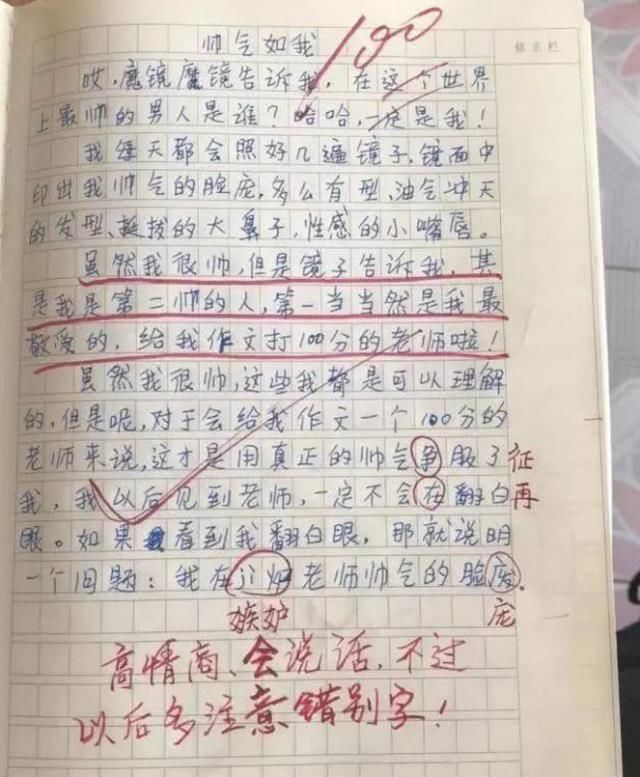 100
修正栏
帅气如我
哎,魔镜魔镜告诉我,在这个世界
上最帅的男人是谁?哈哈,一定是我!
我每天都会照好几遍镜子,镜面中
印出我帅气的脸庞,多么有型,油气冲天
的发型、挺拔的大鼻子,性感的小嘴唇。
虽然我很帅,但是镜子告诉我,其
是我是第二帅的人,第一当当然是我最
敬爱的,给我作文打100分的老师啦!
虽然我很帅,这些我都是可以理解
的,但是呢,对于会给我作文一个100分的
老师来说,这才是用真正的帅气争服了 征
我,我以后见到老师,一定不会在翻白 再
眼。如果看到我翻白眼,那就说明
一个问题:我在老师帅气的脸.
嫉妒 庞
高情商、会说话,不过
以后多注意错别字!